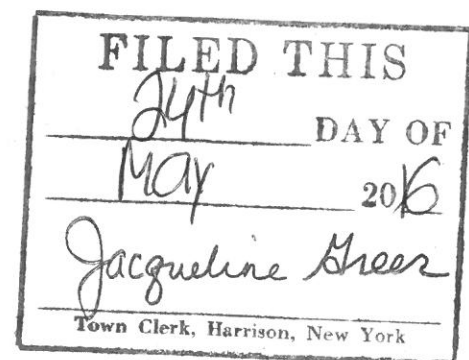 FILED THIS
24th DAY OF
May 2016
Jacqueline Greer
Town Clerk, Harrison, New York